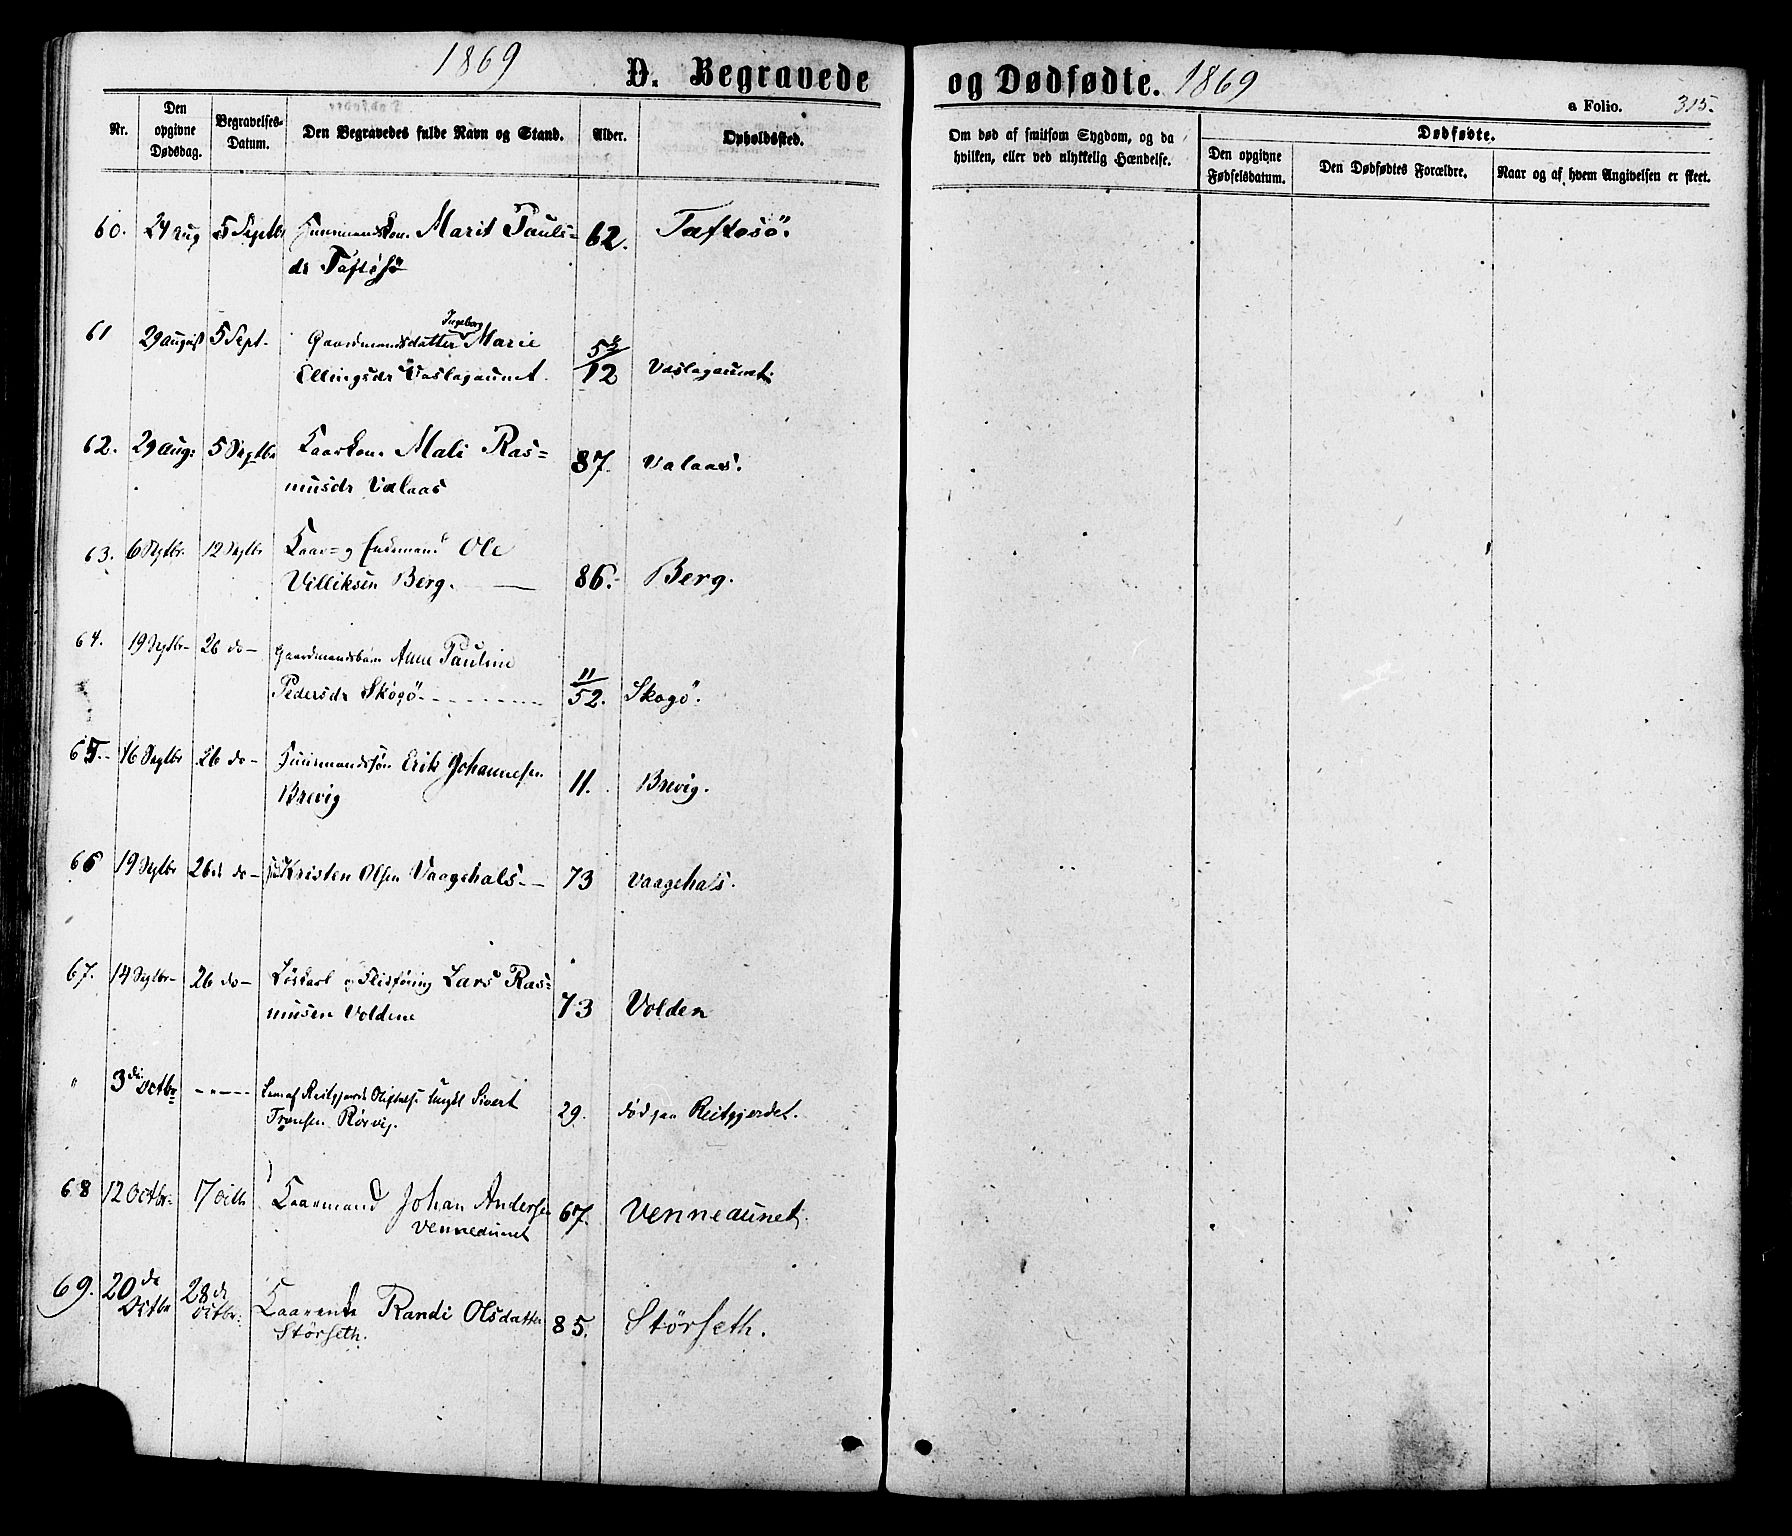 1869
D. Begravede
og Dødfødte. 1869
a Folio. 315.
Nr.
Den opgivne Dødsdag.
Begravelses-Datum.
Den Begravedes fulde Navn og Stand.
Alder.
Opholdssted.
Om død af smitsom Sygdom, og da hvilken, eller ved ulykkelig Hændelse.
Dødfødte.
Den opgivne Fødselsdatum.
Den Dødfødtes Forældre.
Naar og af hvem Angivelsen er skeet.
60. 24 Aug 5 Septbr Marit Pauls= 62. Taftøsö.
dr Taftösö
61 29 August 5 Sept. Gaardmandsdatter Ingeborg Marie 5/12
Ellingsdr Vaslagaunet. Vaslagaunet.
62. 29 Aug: 5 Septbr Kaarkone Mali Ras= 87. Valaas.
musdr Valaas
63. 6 Septbr. 12 Septbr Kaar= og Enkemand Ole
Villiksen Berg. 86.- Berg.
64. 19 Septbr- 26 do- Gaardmandsbarn Anne Pauline 11/52.
Pedersdr Skogö Skogö.
65.- 16 Septbr 26 do- Erik Johannesen 11. Brevig.
Brevig
66 19 Septbr 26 do- Kristen Olsen Vaagehals.- 73 Vaagehals.
67. 14 Septbr- 26 do- Løskarl og Lars Ras=
musen Voldene 73 Volden
" 3die Octbr ----- Lem af Reitgjerdet Sivert
Tronsen Rörvig. 29. død paa Reitgjerdet.
68 12 Octbr- 17 Octb Kaarmand Johan Andersen 67. Venneaunet.
Venneaunet
69. 20de Octbr 28de Octbr: Kaarenke Randi Olsdatter 85. Störseth.
Störseth.